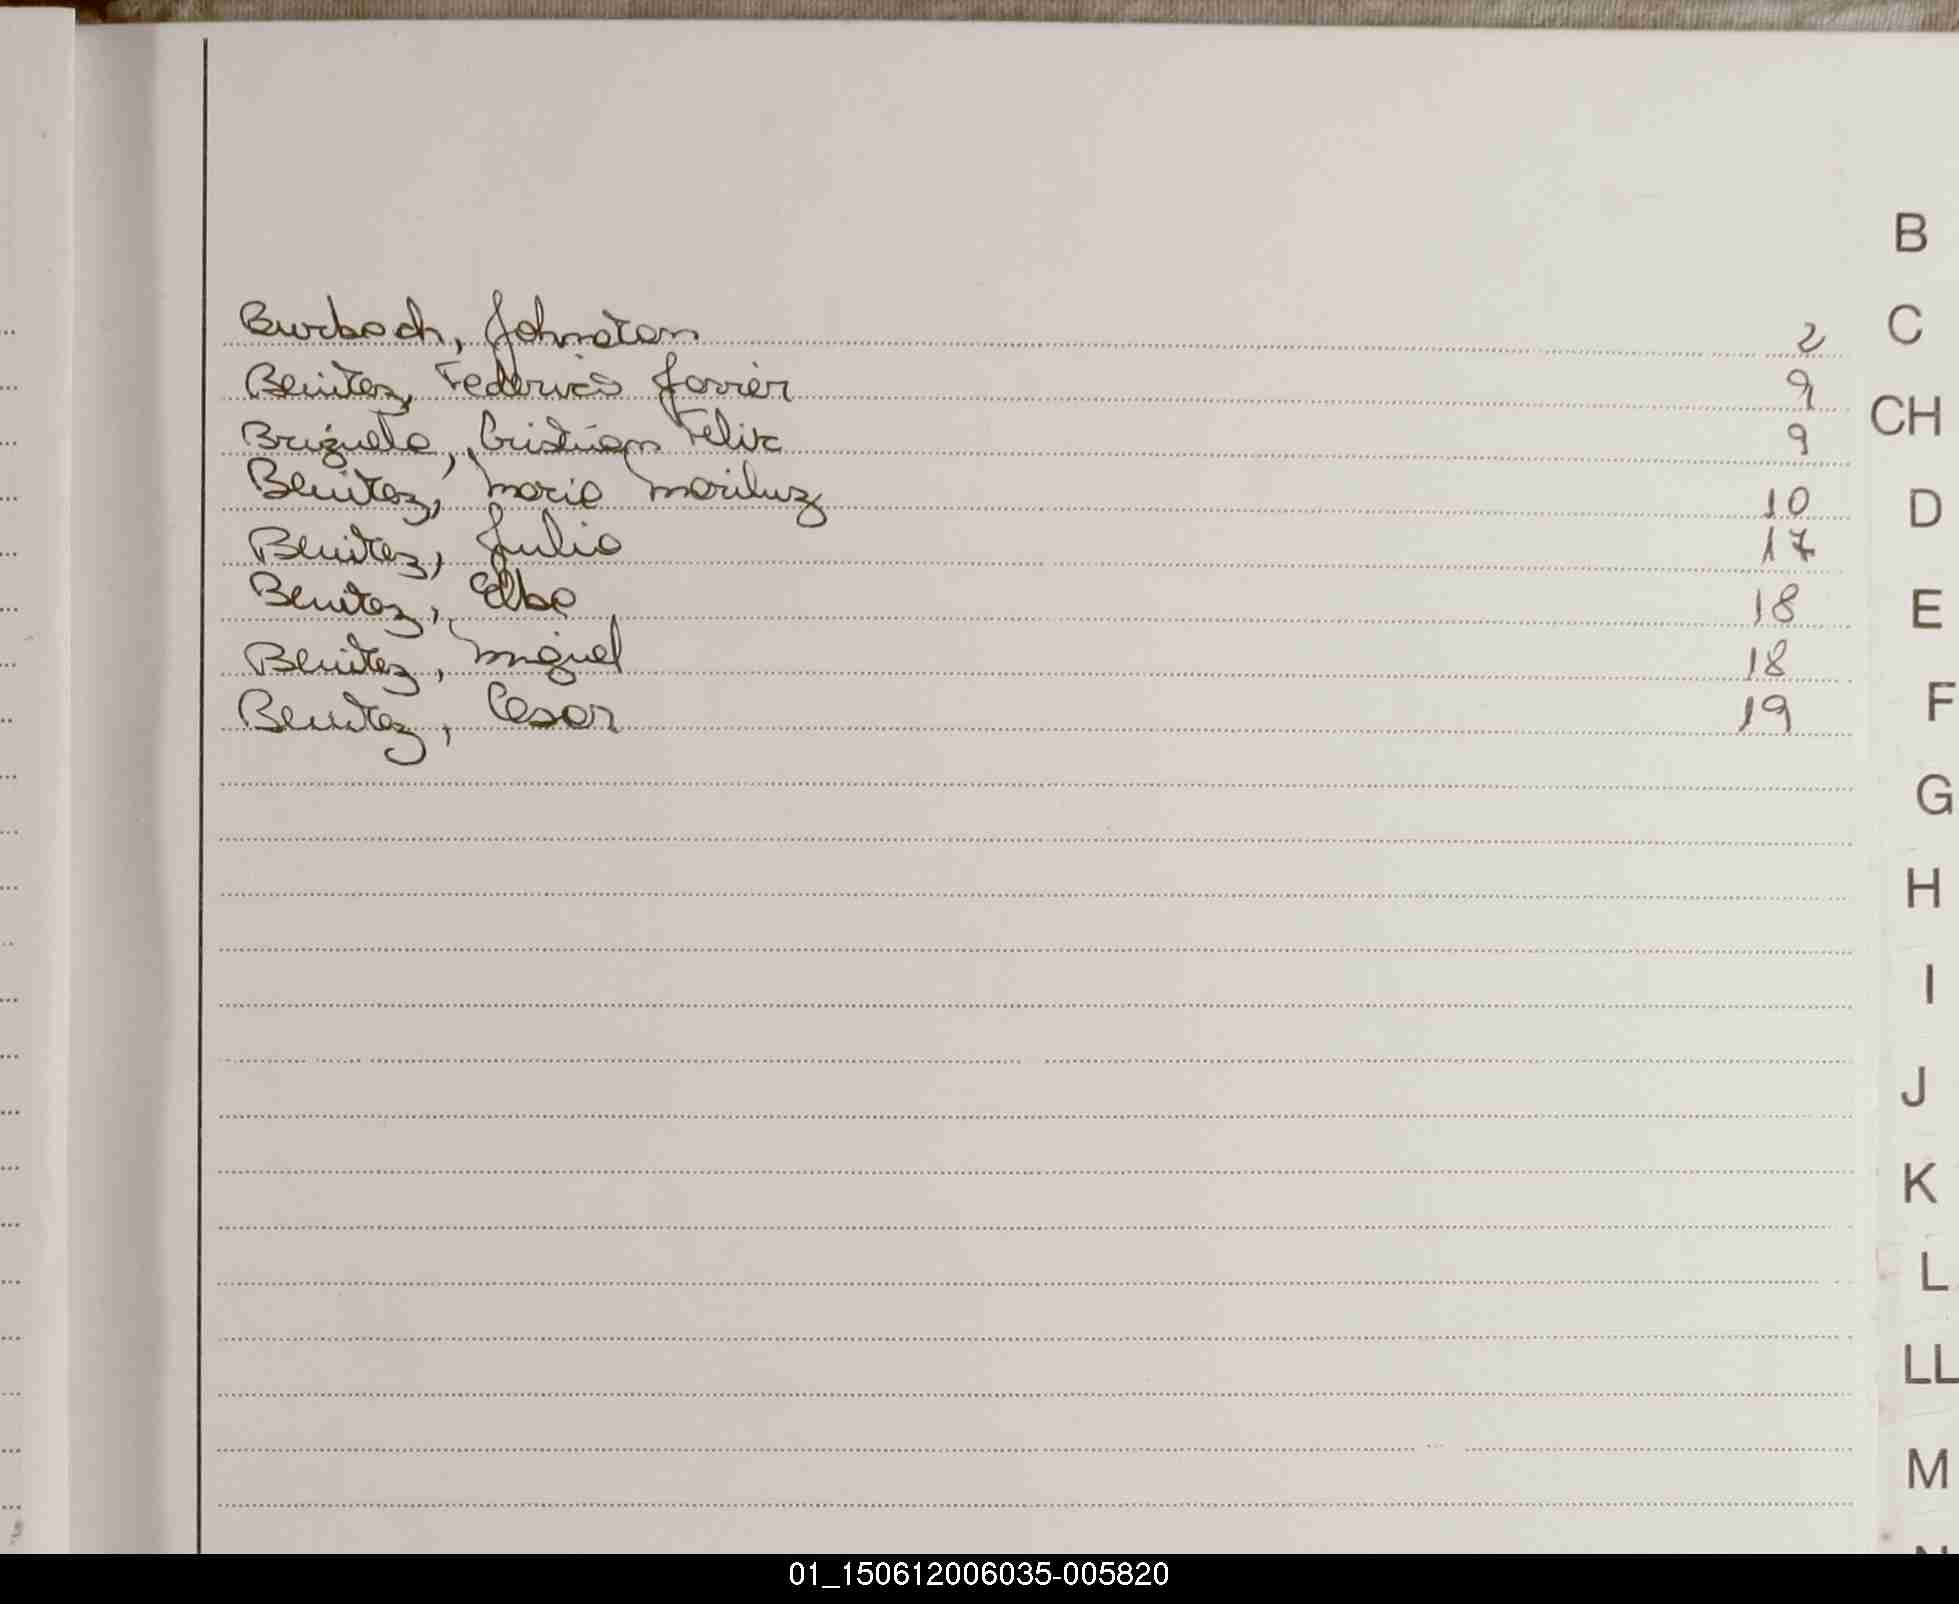 B
Burbach, Johnatan 2
C
Benitez, Federico Javier 9
CH
Brizuela, Cristian Felix 9
Benitez, Maria Mariluz 10
D
Benitez, Julio 17
Benitez, Elba 18
E
Benitez, Miguel 18
Benitez, Cesar 19
F
G
H
I
J
K
L
LL
M
01_150612006035-005820